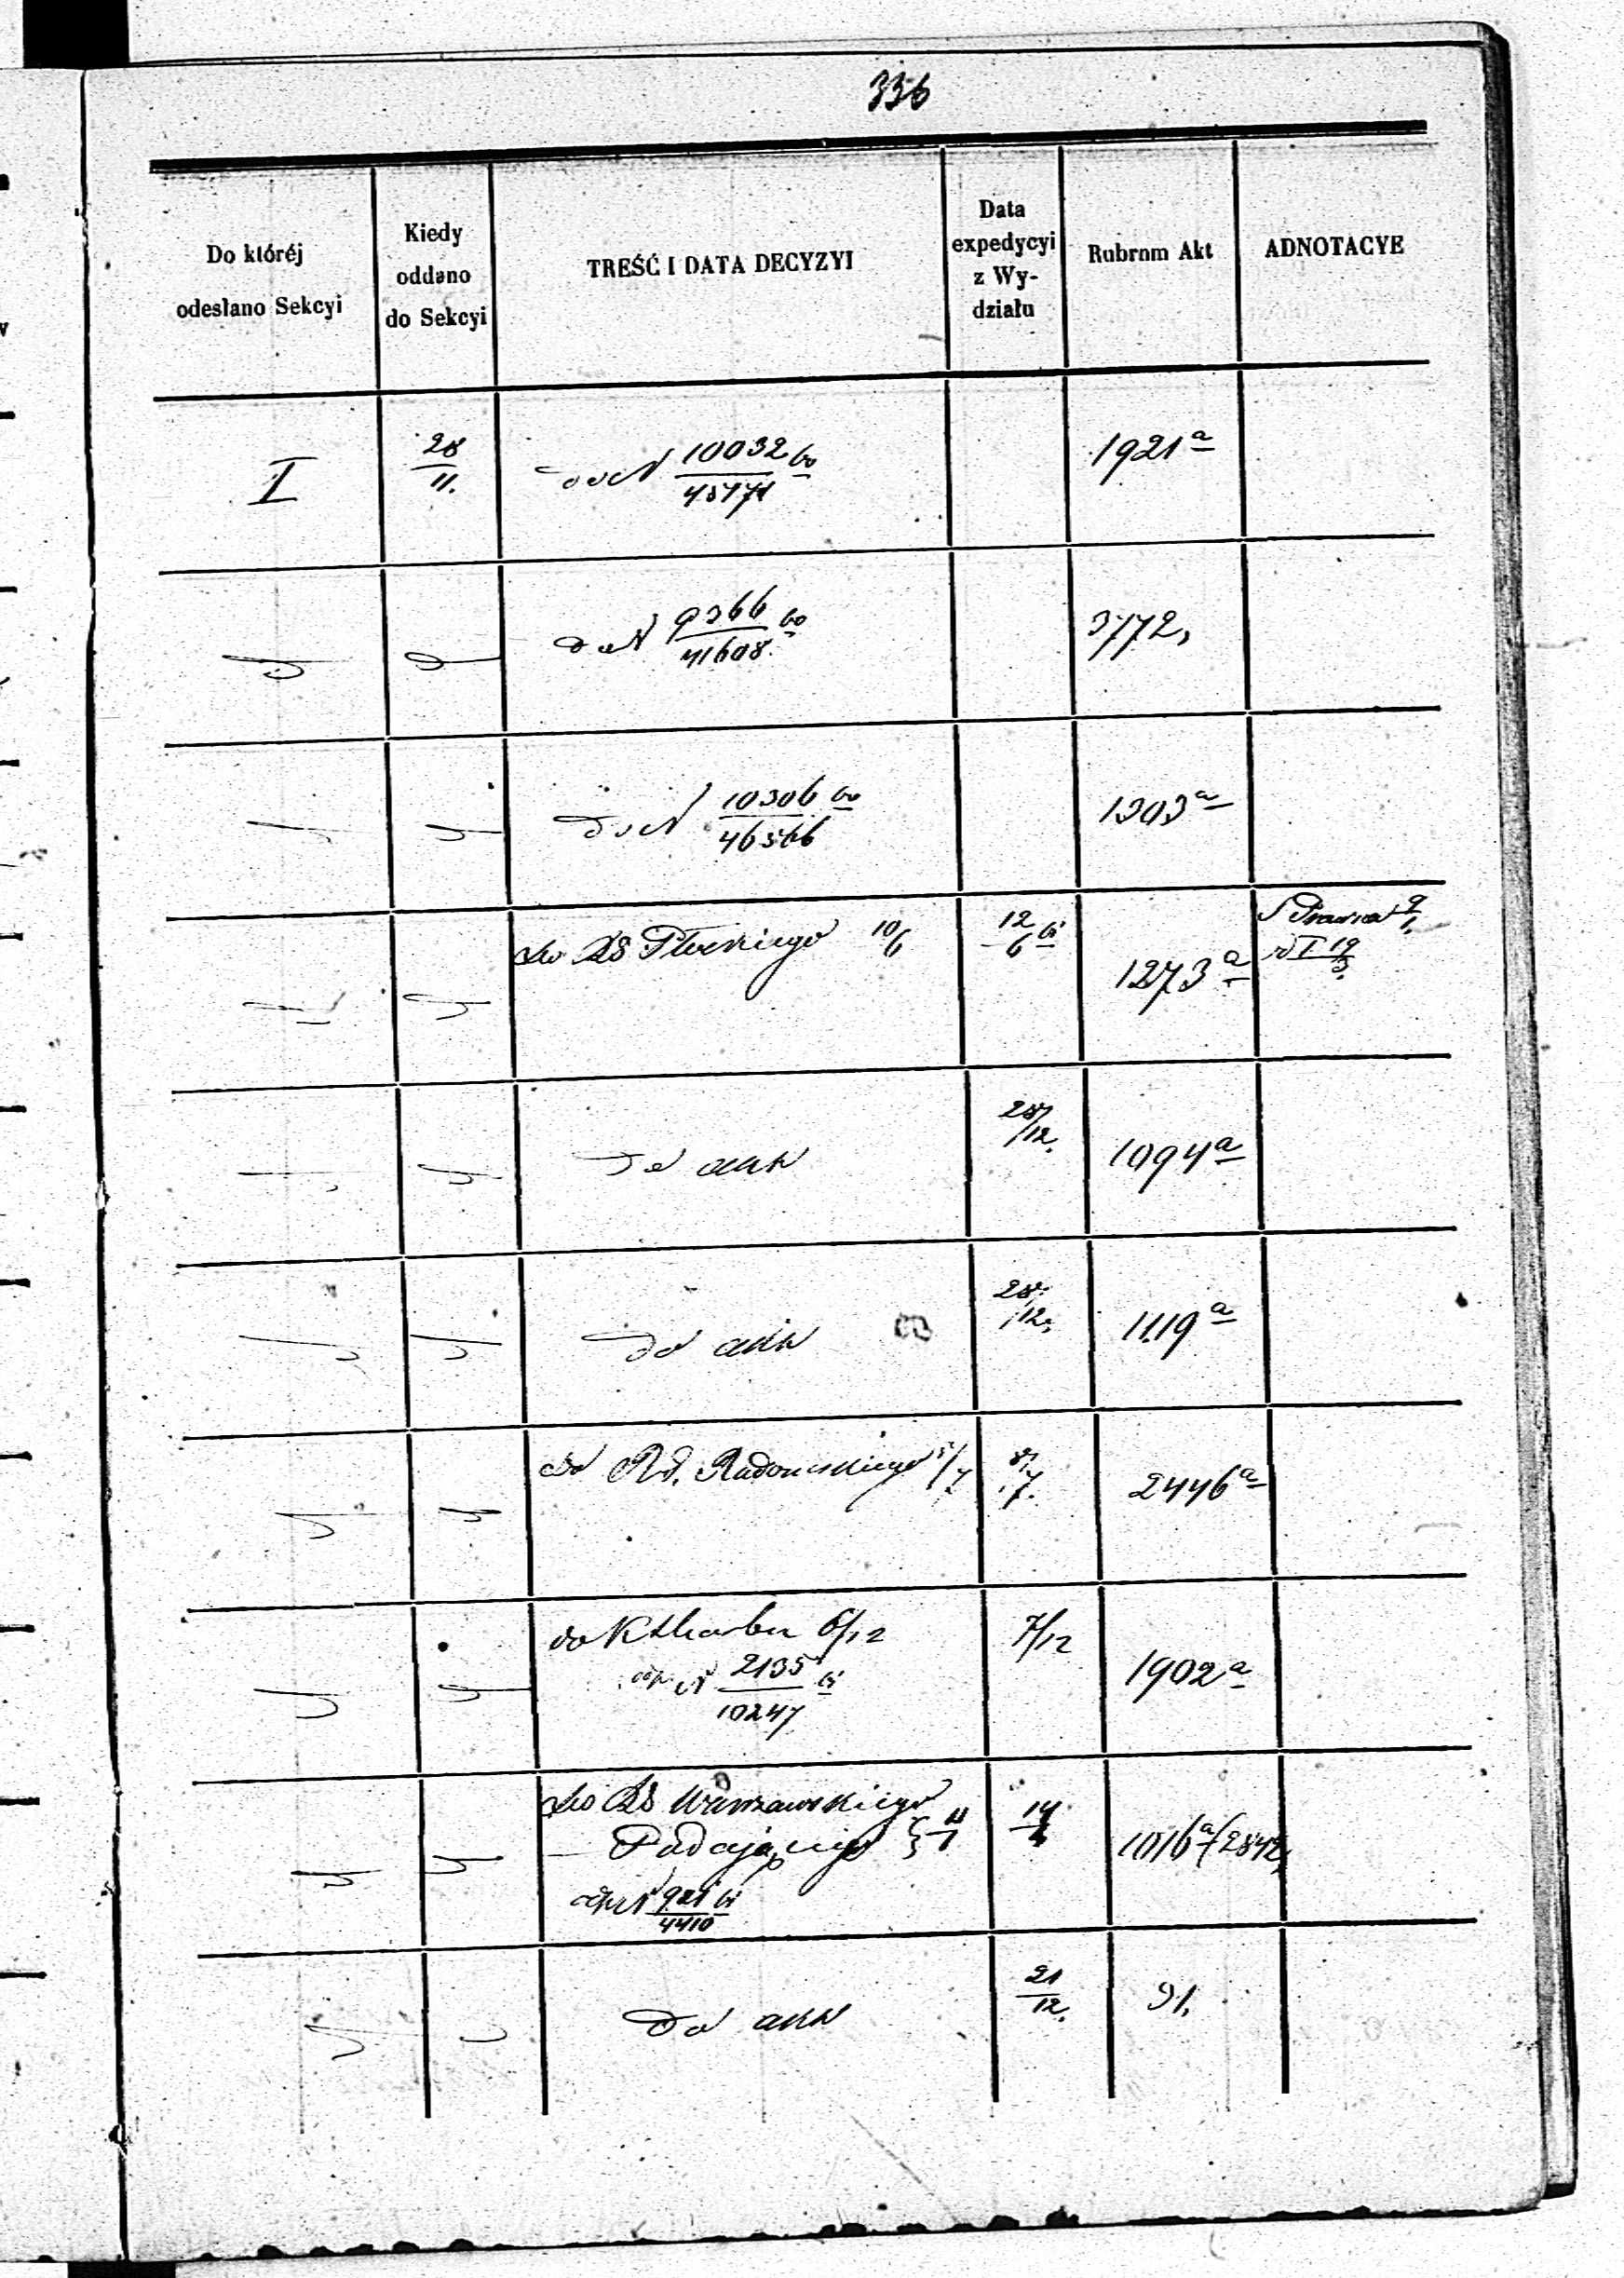 336
Do któréj
odesłano Sekcyi
Kiedy
oddano
do Sekcyi
TREŚĆ I DATA DECYZYI
Data
expedycyi
z Wy-
działu
Rubrum Akt
ADNOTACYE
I
28/11.
do N 10032/45171 60
1921 a
do N 9366/41608 60
3772,
do N 10306/46566 60
1303 a
do RG Płockiego 10/6
12/6 61
1273 a
9/1
I 19/3
do akt
28/12.
1094 a
do akt
28/12,
1119 a
do Radomskiego 5/7
8/7.
2446 a
do K Skarbu 6/12
N 2135/10247 61
7/12
1902 a
do RG Warszawskiego
Podającego
N 921/4410 61
14
1016 a (2842,
do akt
21/12.
91,